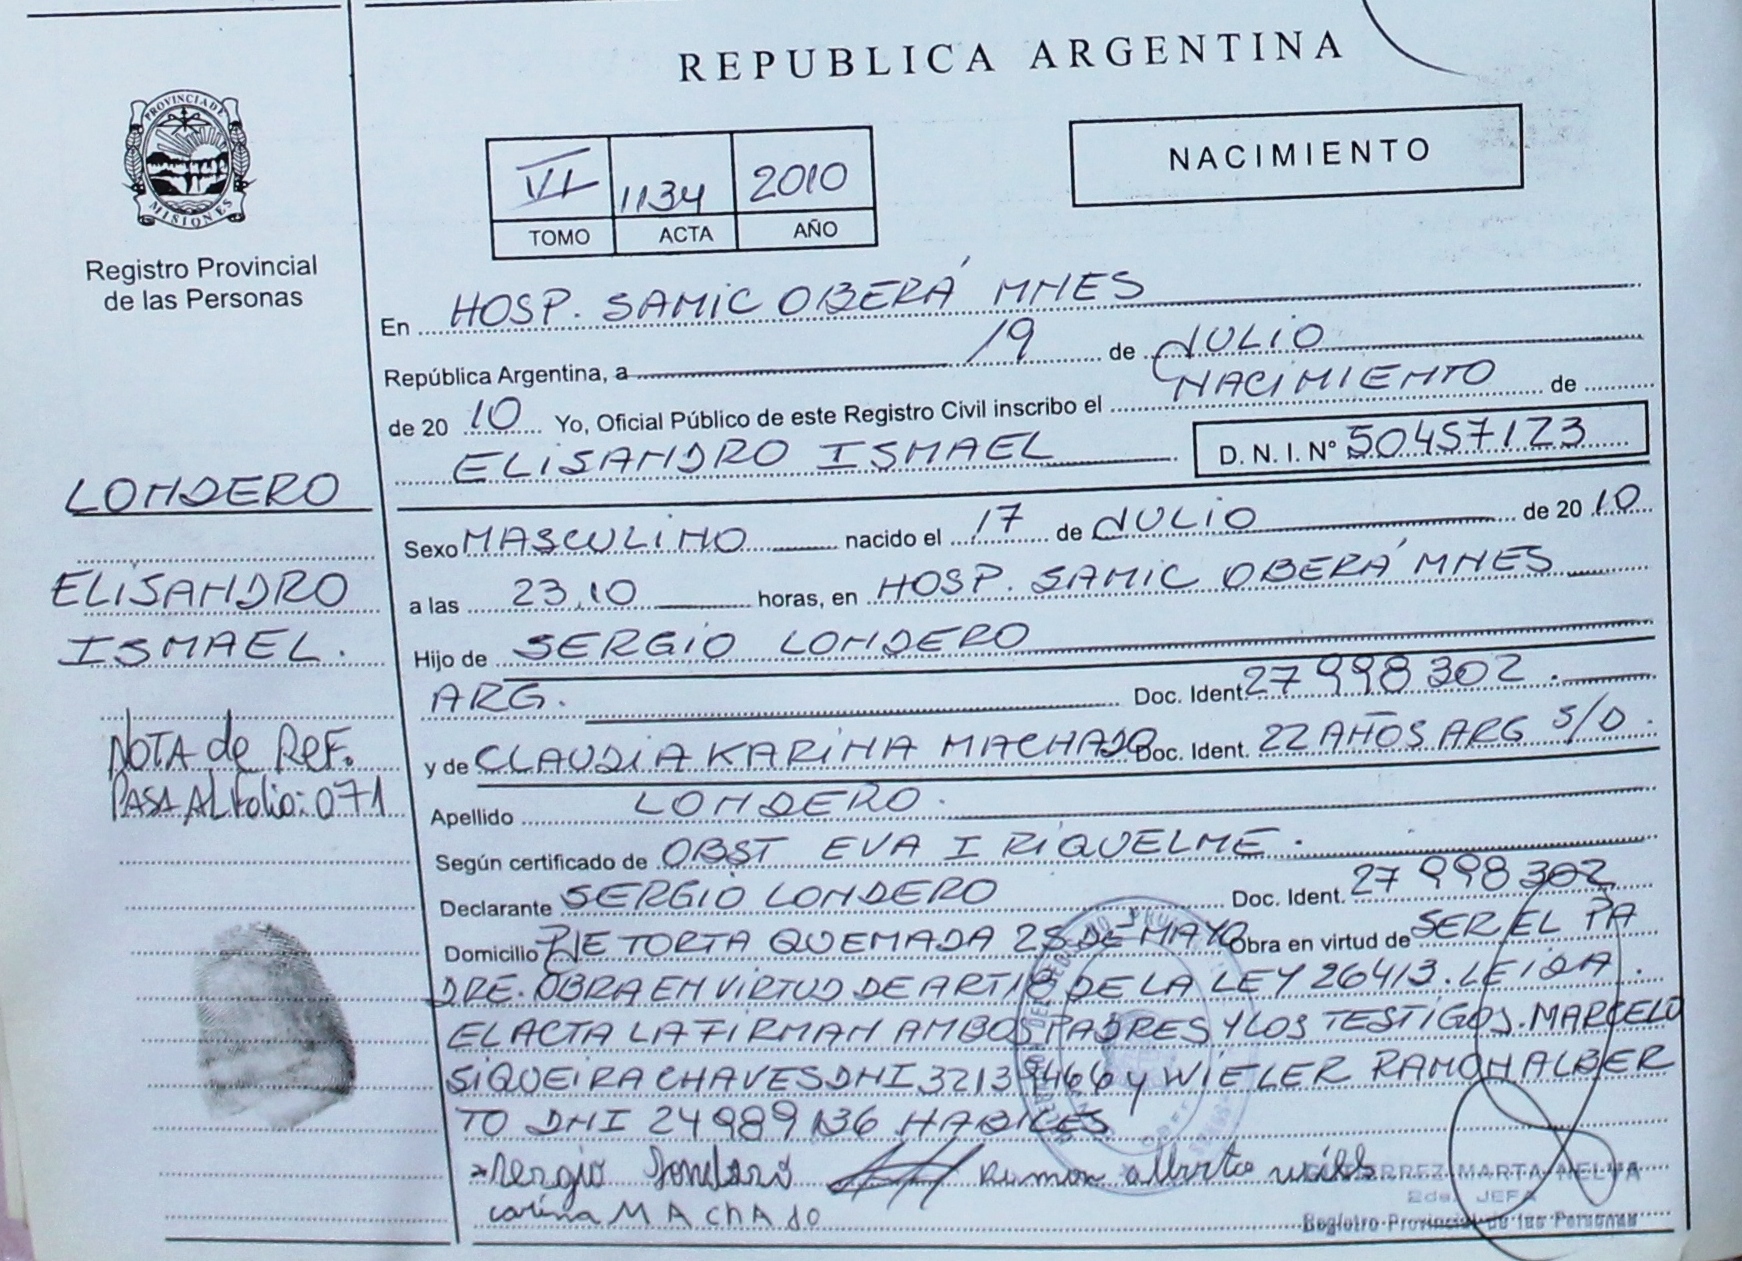 REPUBLICA ARGENTINA
PROVINCIA DE
MISIONES
Registro Provincial
de las Personas
NACIMIENTO
VI 1134 2010
TOMO ACTA AÑO
En HOSP. SAMIC OBERÁ MNES
República Argentina, a 19 de JULIO
de 20 10 Yo, Oficial Público de este Registro Civil inscribo el NACIMIENTO de
ELISANDRO ISMAEL D. N. I. Nº 50457123
LONDERO
ELISANDRO
ISMAEL.
NOTA de REF.
PASA AL Folio: 071
Sexo MASCULINO nacido el 17 de JULIO de 20 10
a las 23,10 horas, en HOSP. SAMIC OBERÁ MNES
Hijo de SERGIO LONDERO
ARG. Doc. Ident. 27998302.
y de CLAUDIA KARINA MACHADO Doc. Ident. 22 AÑOS ARG S/D.
Apellido LONDERO.
Según certificado de OBST EVA I RIQUELME.
Declarante SERGIO LONDERO Doc. Ident. 27 998 302
Domicilio PJE TORTA QUEMADA 25 DE MAYO Obra en virtud de SER EL PA
DRE. OBRA EN VIRTUD DE ART 18 DE LA LEY 26413. LEIDA
EL ACTA LA FIRMAN AMBOS PADRES Y LOS TESTIGOS. MARCELO
SIQUEIRA CHAVES DNI 32139466 y WIELER RAMON ALBER
TO DNI 24989136 HABILES
Sergio Londero Ramon alberto
carina MAchAdo
MARTA NELVA
2da. JEFA
Registro Provincial de las Personas